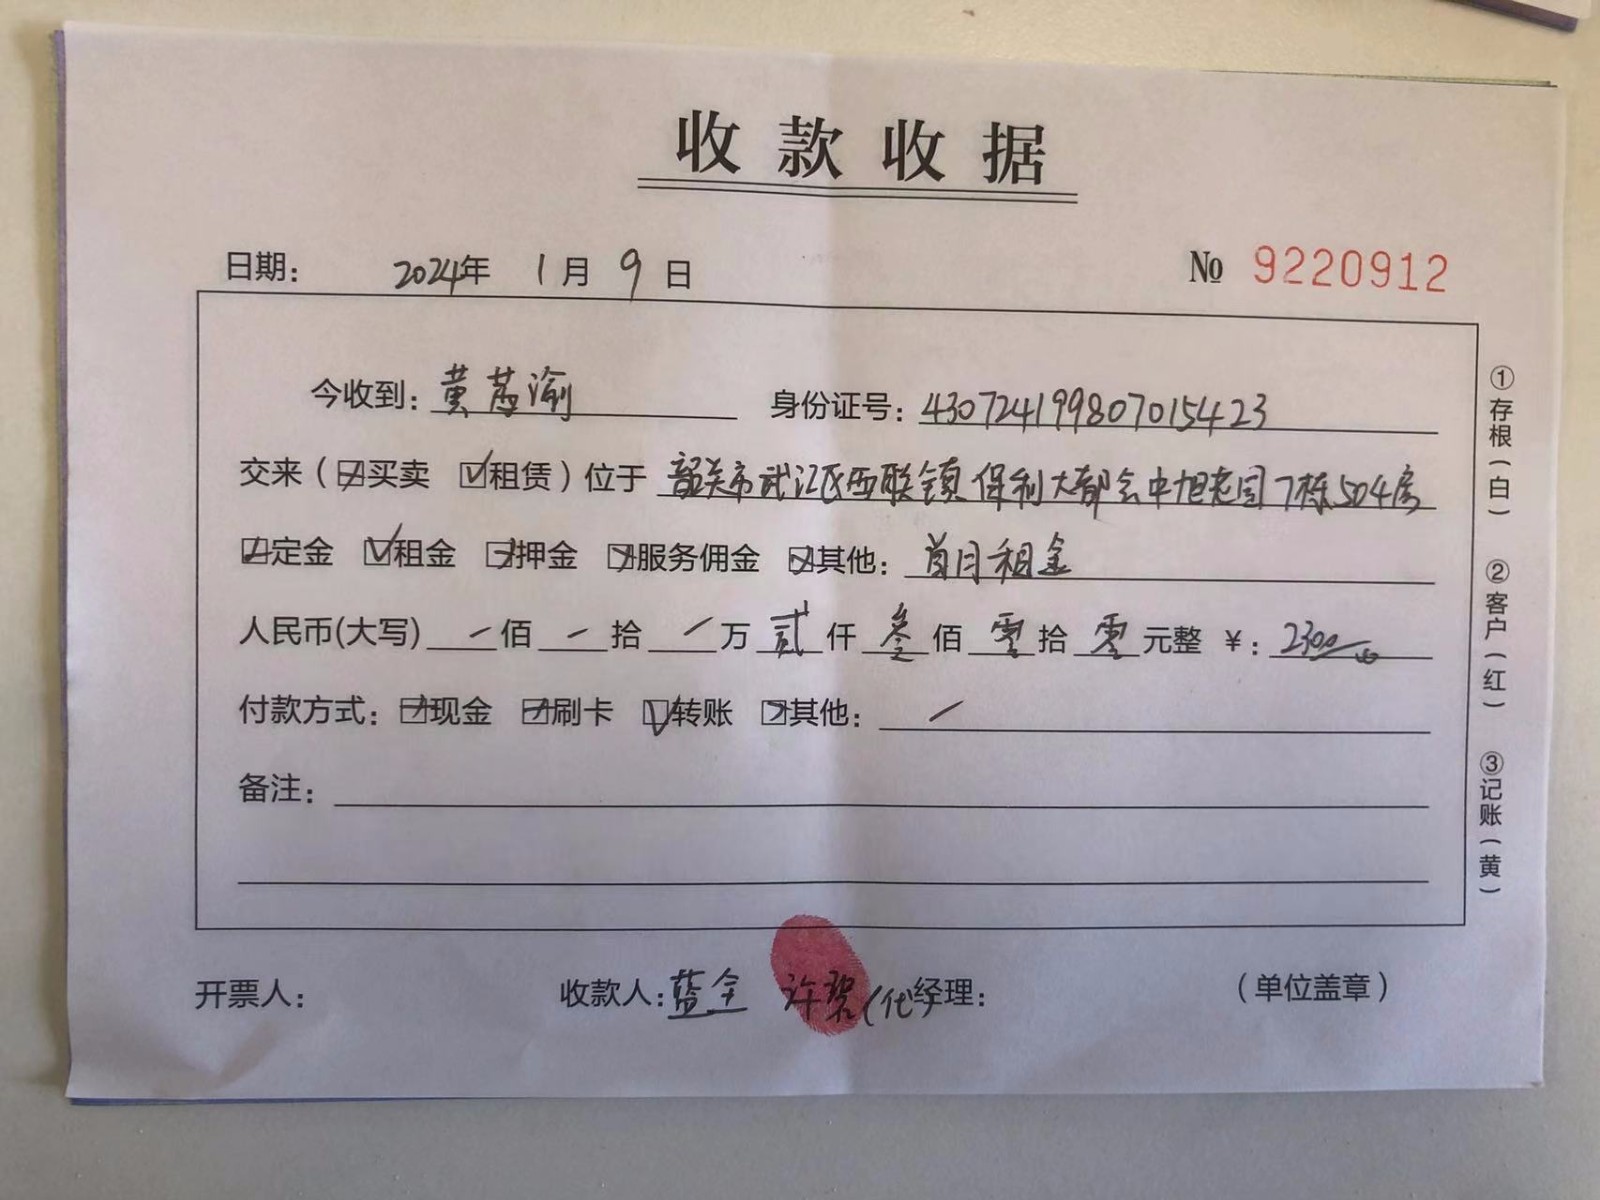 收款收据
日期： 2024年 1月 9日 № 9220912
今收到：黄 渝 身份证号：430724199807015423
交来（买卖 租赁）位于 韶关市武江区西联镇保利大都会中旭花园7栋504房
定金 租金 押金 服务佣金 其他：首月租金
人民币(大写) / 佰 / 拾 / 万 贰 仟 叁 佰 零 拾 零 元整 ¥：2300
付款方式：现金 刷卡 转账 其他： /
备注：
开票人： 收款人：蓝全 许碧（代 经理： （单位盖章）
①存根（白）
②客户（红）
③记账（黄）